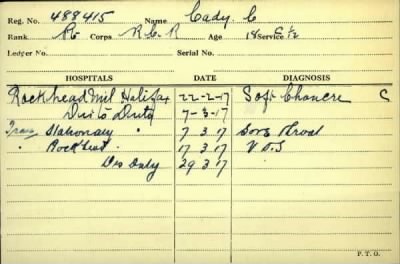 Reg. No. 488415 Name Cady, C
Rank Pte Corps R.C.R Age 18 Service 6/12
Ledger No. Serial No.
HOSPITALS DATE DIAGNOSIS
Rockhead Mil Halifax 22-2-17 Soft Chancre C
Dis to Duty 7-3-17
Trans Stationary " 7 3 17 Sore Throat
" Rockhead 17 3 17 V.D.S
Dis Duty 29 3 17
P.T.O.